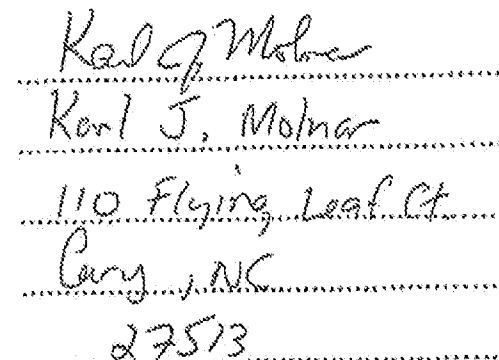 Karl J. Molnar
Karl J. Molnar
110 Flying Leaf Ct
Cary, NC
27513